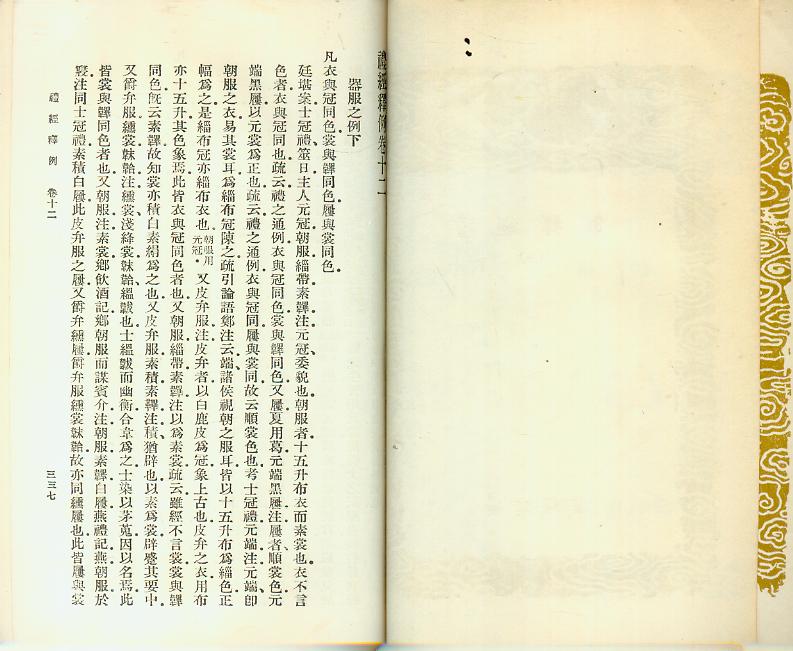 禮經釋例卷十二
器服之例下
凡衣與冠同色裳與韠同色屨與裳同色
廷堪案士冠禮筮日主人元冠朝服緇帶素韠注元冠委貌也朝服者十五升布衣而素裳也衣不言
色者衣與冠同也疏云禮之通例衣與冠同色裳與韠同色又屨夏用葛元端黑屨注屨者順裳色元
端黑屨以元裳爲正也疏云禮之通例衣與冠同屨與裳同故云順裳色也考士冠禮元端注元端卽
朝服之衣易其裳耳爲緇布冠陳之疏引論語鄭注云端諸侯視朝之服耳皆以十五升布爲緇色正
幅爲之是緇布冠亦緇布衣也朝服用元冠又皮弁服注皮弁者以白鹿皮爲冠象上古也皮弁之衣用布
亦十五升其色象焉此皆衣與冠同色者也又朝服緇帶素韠注以爲素裳疏云雖經不言裳裳與韠
同色旣云素韠故知裳亦積白素絹爲之也又皮弁服素積素韠注積猶辟也以素爲裳辟蹙其要中
又爵弁服纁裳韎韐注纁裳淺絳裳韎韐縕韍也士縕韍而幽衡合韋爲之士染以茅蒐因以名焉此
皆裳與韠同色者也又朝服注素裳鄉飲酒記鄉朝服而謀賓介注朝服素韠白屨燕禮記燕朝服於
寢注同士冠禮素積白屨此皮弁服之屨又爵弁纁屨爵弁服纁裳韎韐故亦同纁屨也此皆屨與裳
禮經釋例 卷十二
三三七